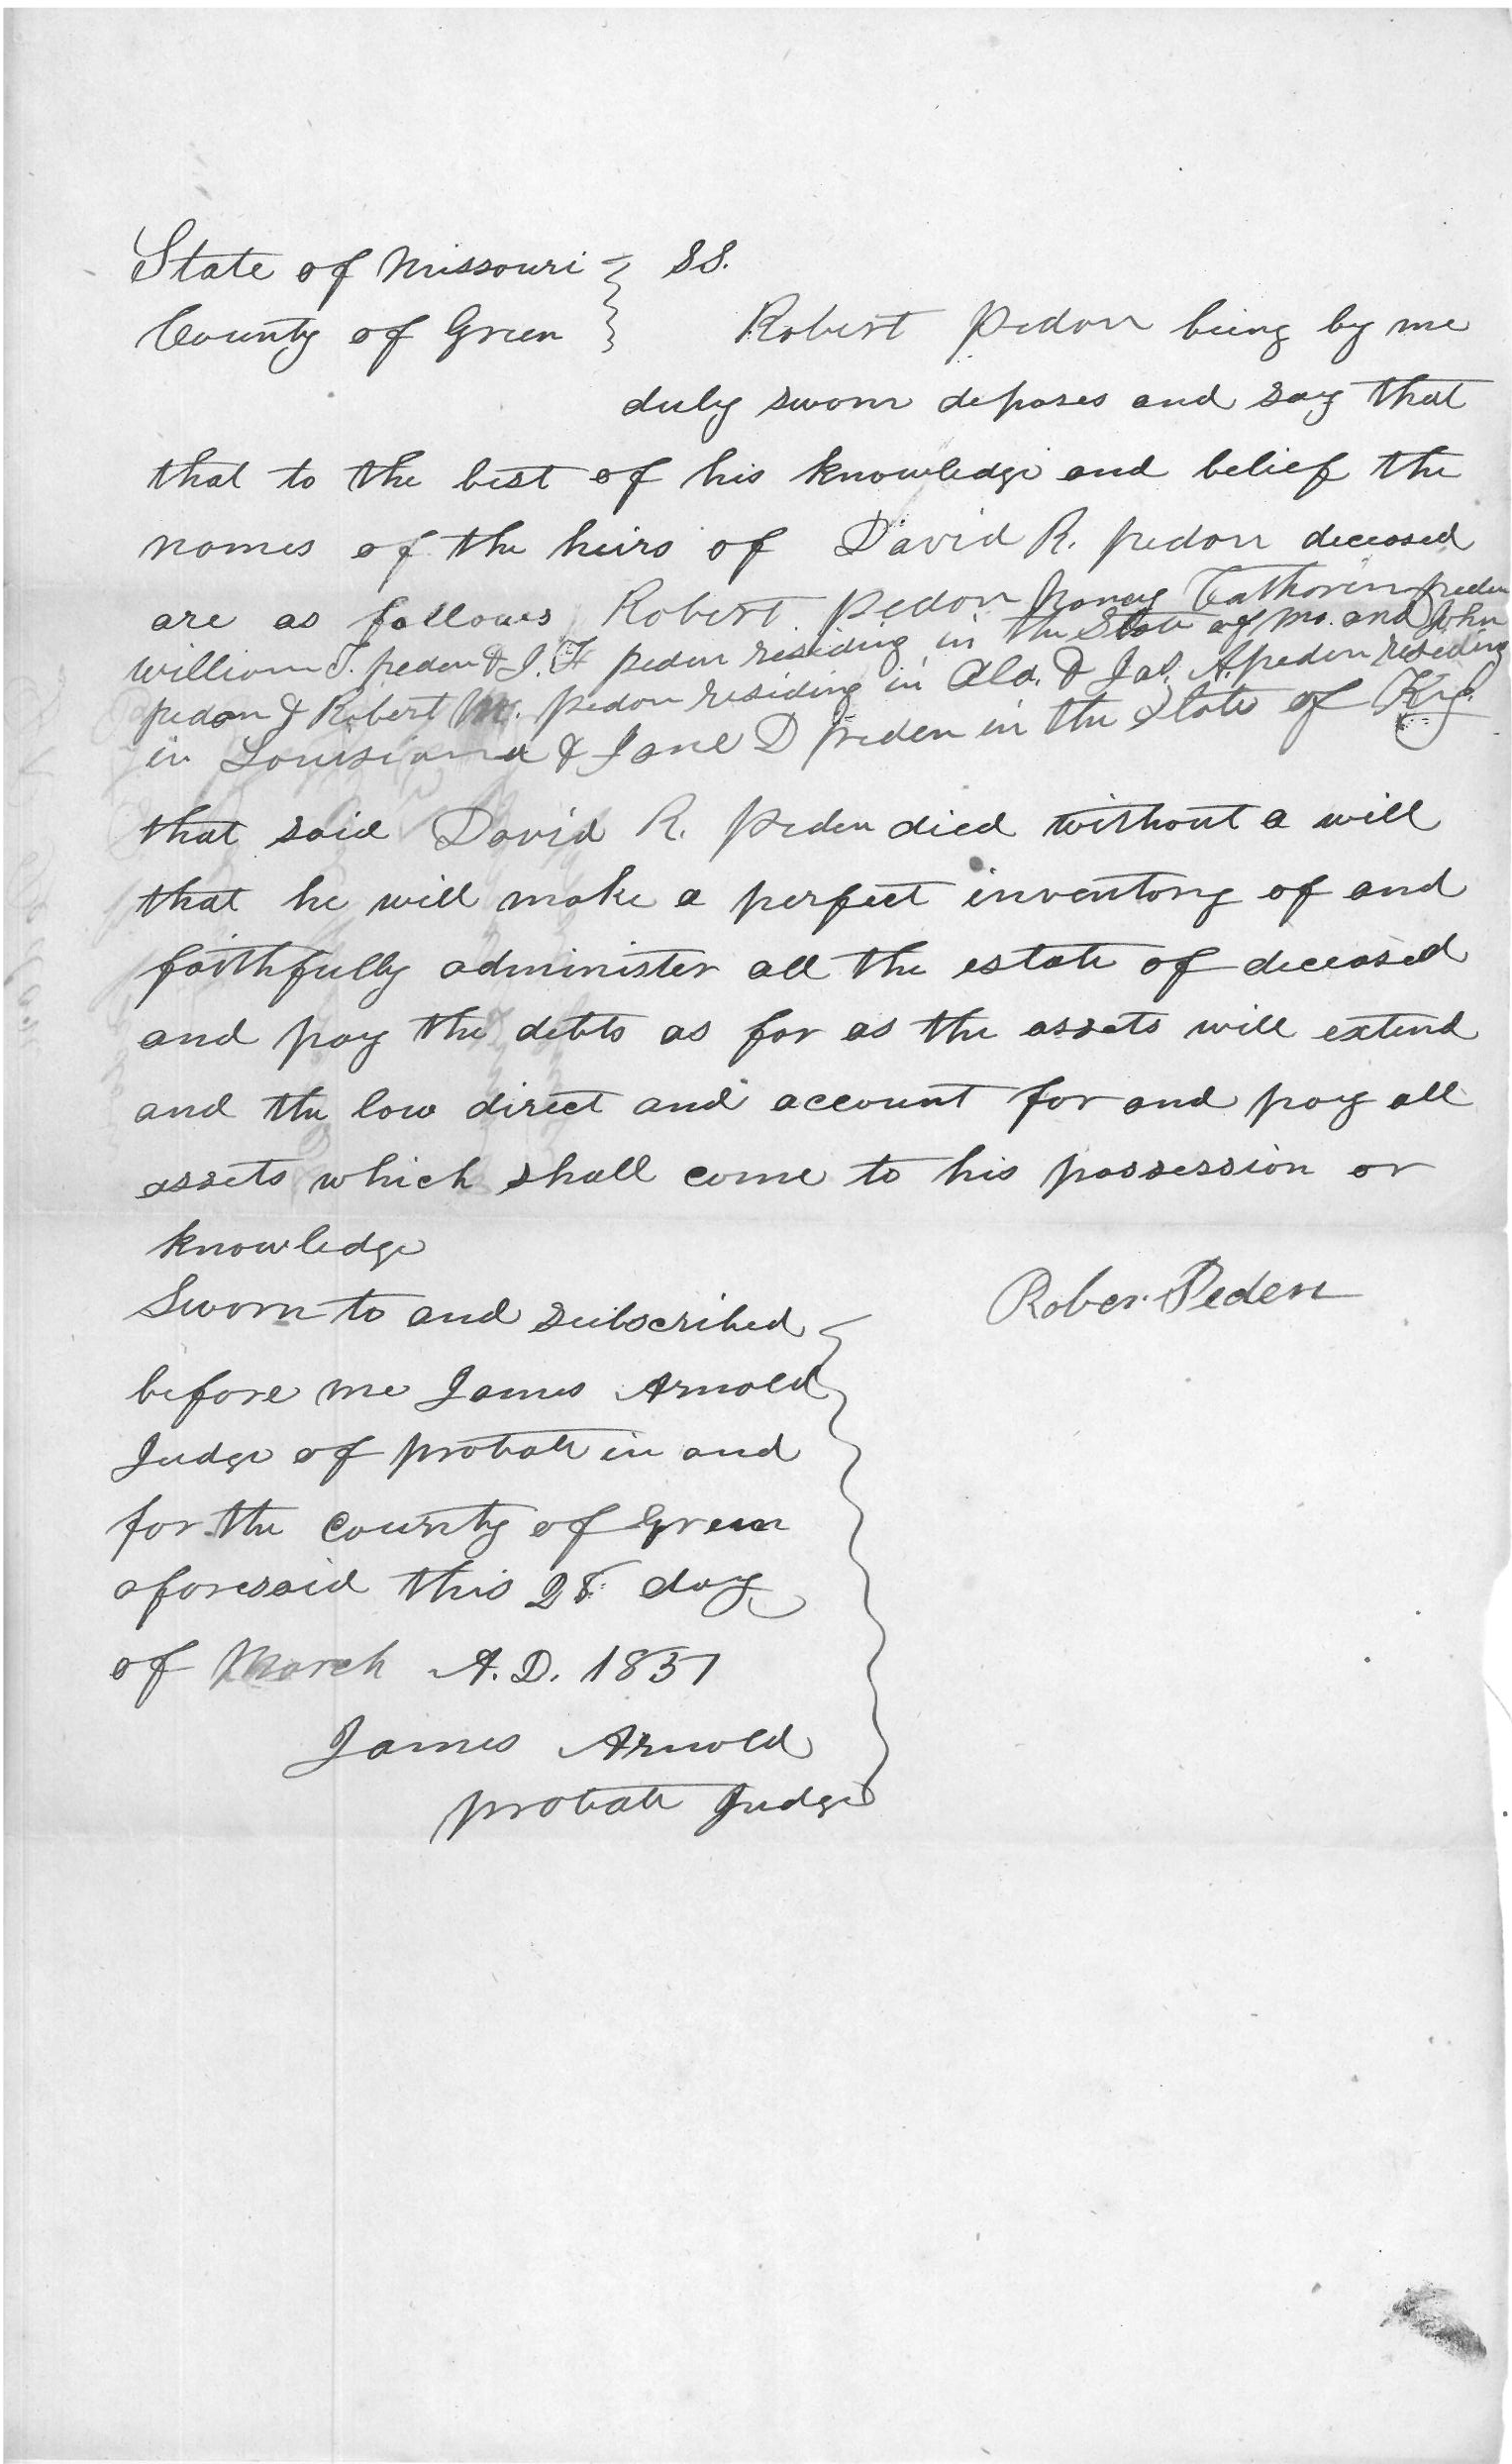 State of Missouri } SS.
County of Green } Robert Pedon being by me
duly sworn deposes and say that
that to the best of his knowledge and belief the
names of the heirs of David R. pedon deceased
are as follows Robert Pedon Nancy Catharin peden
William T. peden & J. H peden residing in the State of Mo. and John
pedan & Robert M. pedon residing in Ala. & Jas. A. peden residing
in Louisiana & Jane D peden in the State of Ky.
that said David R. peden died without a will
that he will make a perfect inventory of and
faithfully administer all the estate of deceased
and pay the debts as far as the assets will extend
and the law direct and account for and pay all
assets which shall come to his possession or
knowledge
Rober Peden
Sworn to and subscribed
before me James Arnold
Judge of probate in and
for the county of Green
aforesaid this 28 day
of March A.D. 1857
James Arnold
probate Judge